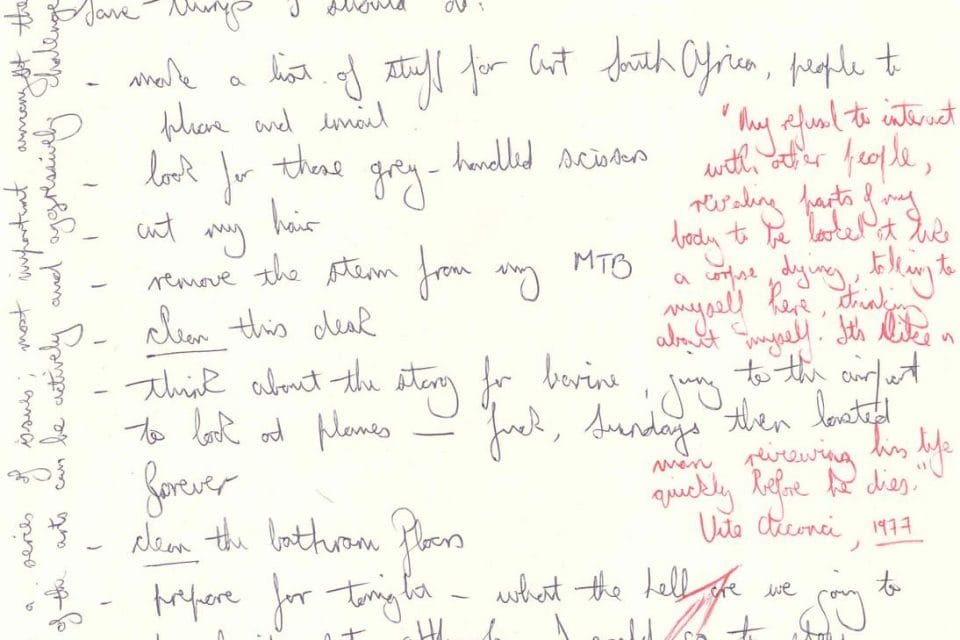 things I should do:
- make a list of stuff for Art South Africa, people to
phone and email
- look for those grey-handled scissors
- cut my hair
- remove the stem from my MTB
- clean this desk
- think about the story for, going to the airport
to look at planes — fuck, Sundays then lasted
forever
- clean the bathroom floors
- prepare for tonight - what the hell are we going to
"My refusal to interact
with other people,
revealing parts of my
body to be looked at like
a corpse, dying, talking to
myself here, thinking
about myself. It's like a
man reviewing his life
quickly before he dies."
Vito Acconci, 1977
a series of issues; most important amongst the
of the arts can be actively and aggressively challenge